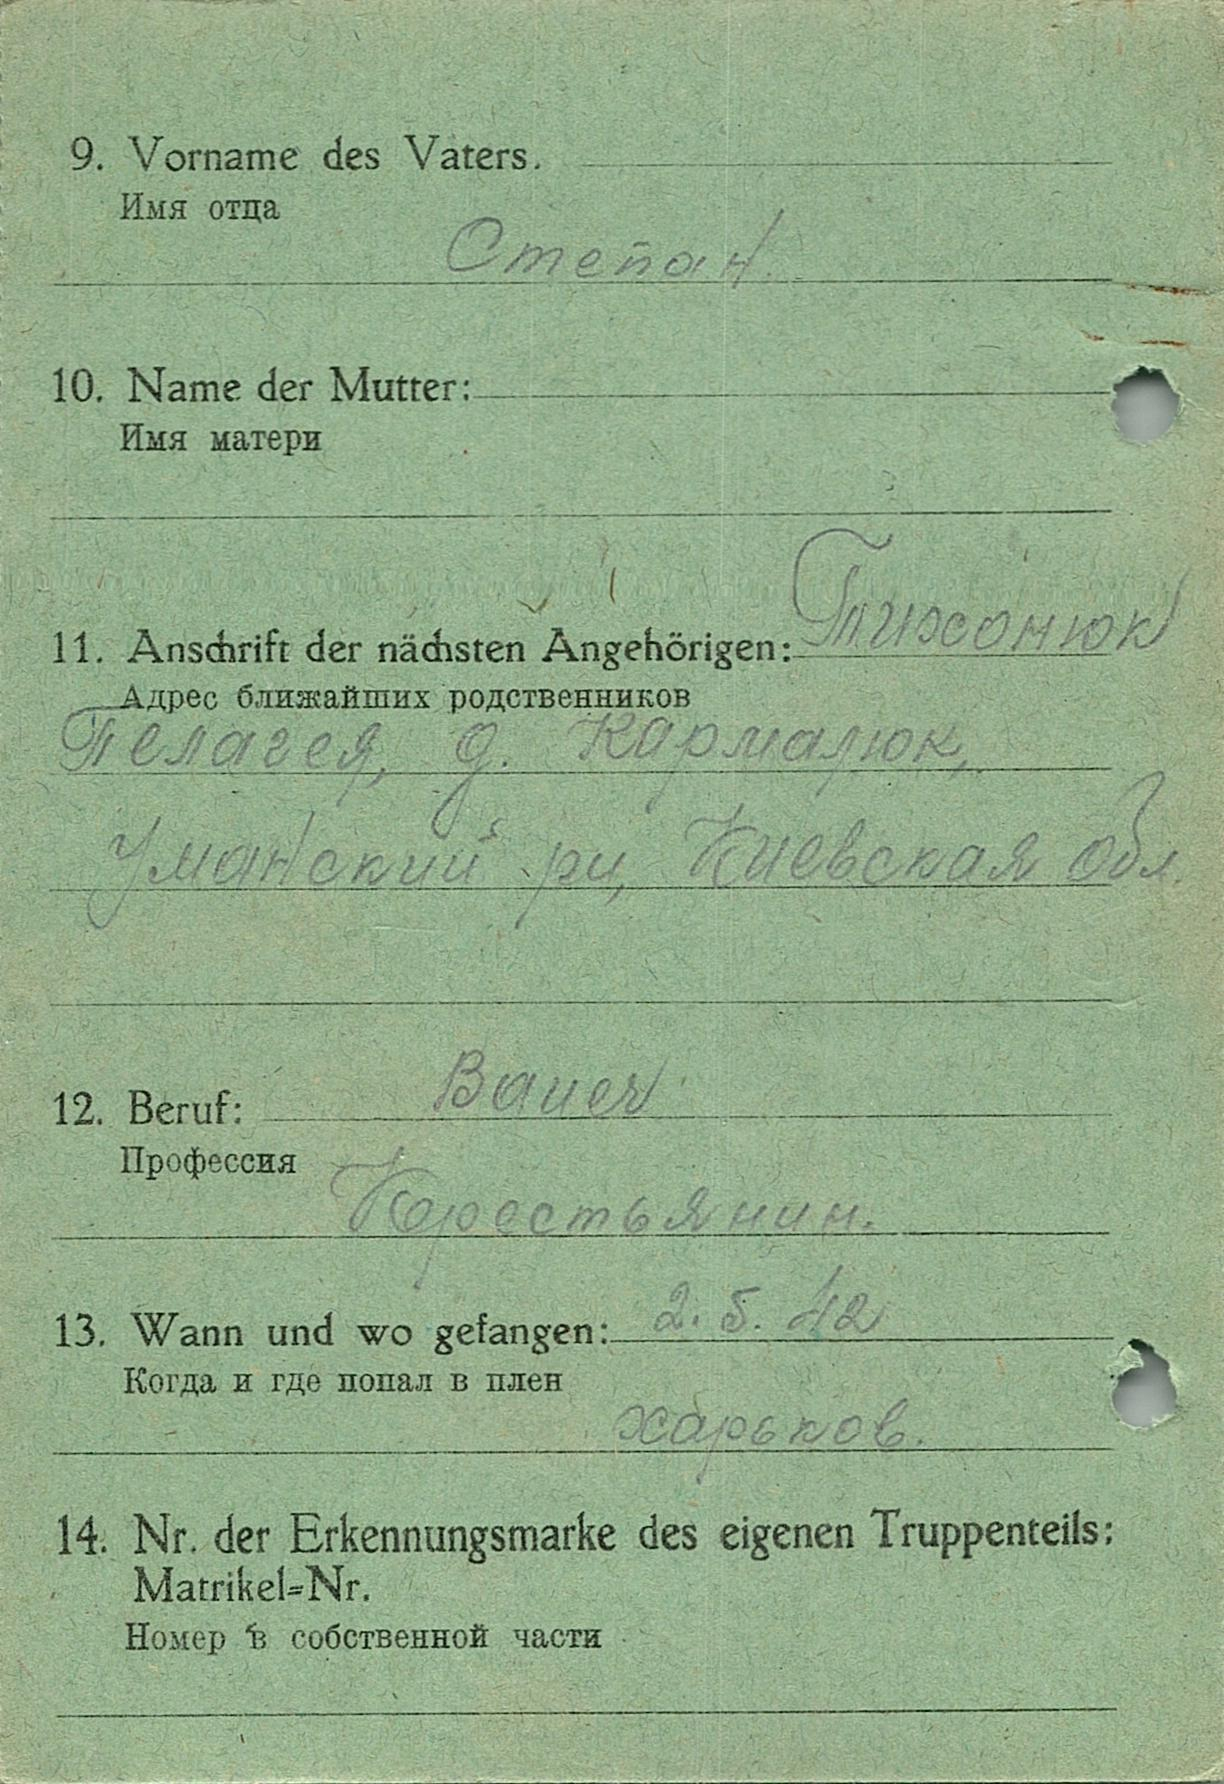 9. Vorname des Vaters.
Имя отца
Степан.
10. Name der Mutter:
Имя матери
11. Anschrift der nächsten Angehörigen: Тихонюк
Адрес ближайших родственников
Пелагея, д. Кармалюк,
Уманский рн, Киевская обл.
12. Beruf: Bauer
Профессия
Крестьянин.
13. Wann und wo gefangen: 2. 5. 42
Когда и где попал в плен
Харьков.
14. Nr. der Erkennungsmarke des eigenen Truppenteils:
Matrikel=Nr.
Номер в собственной части